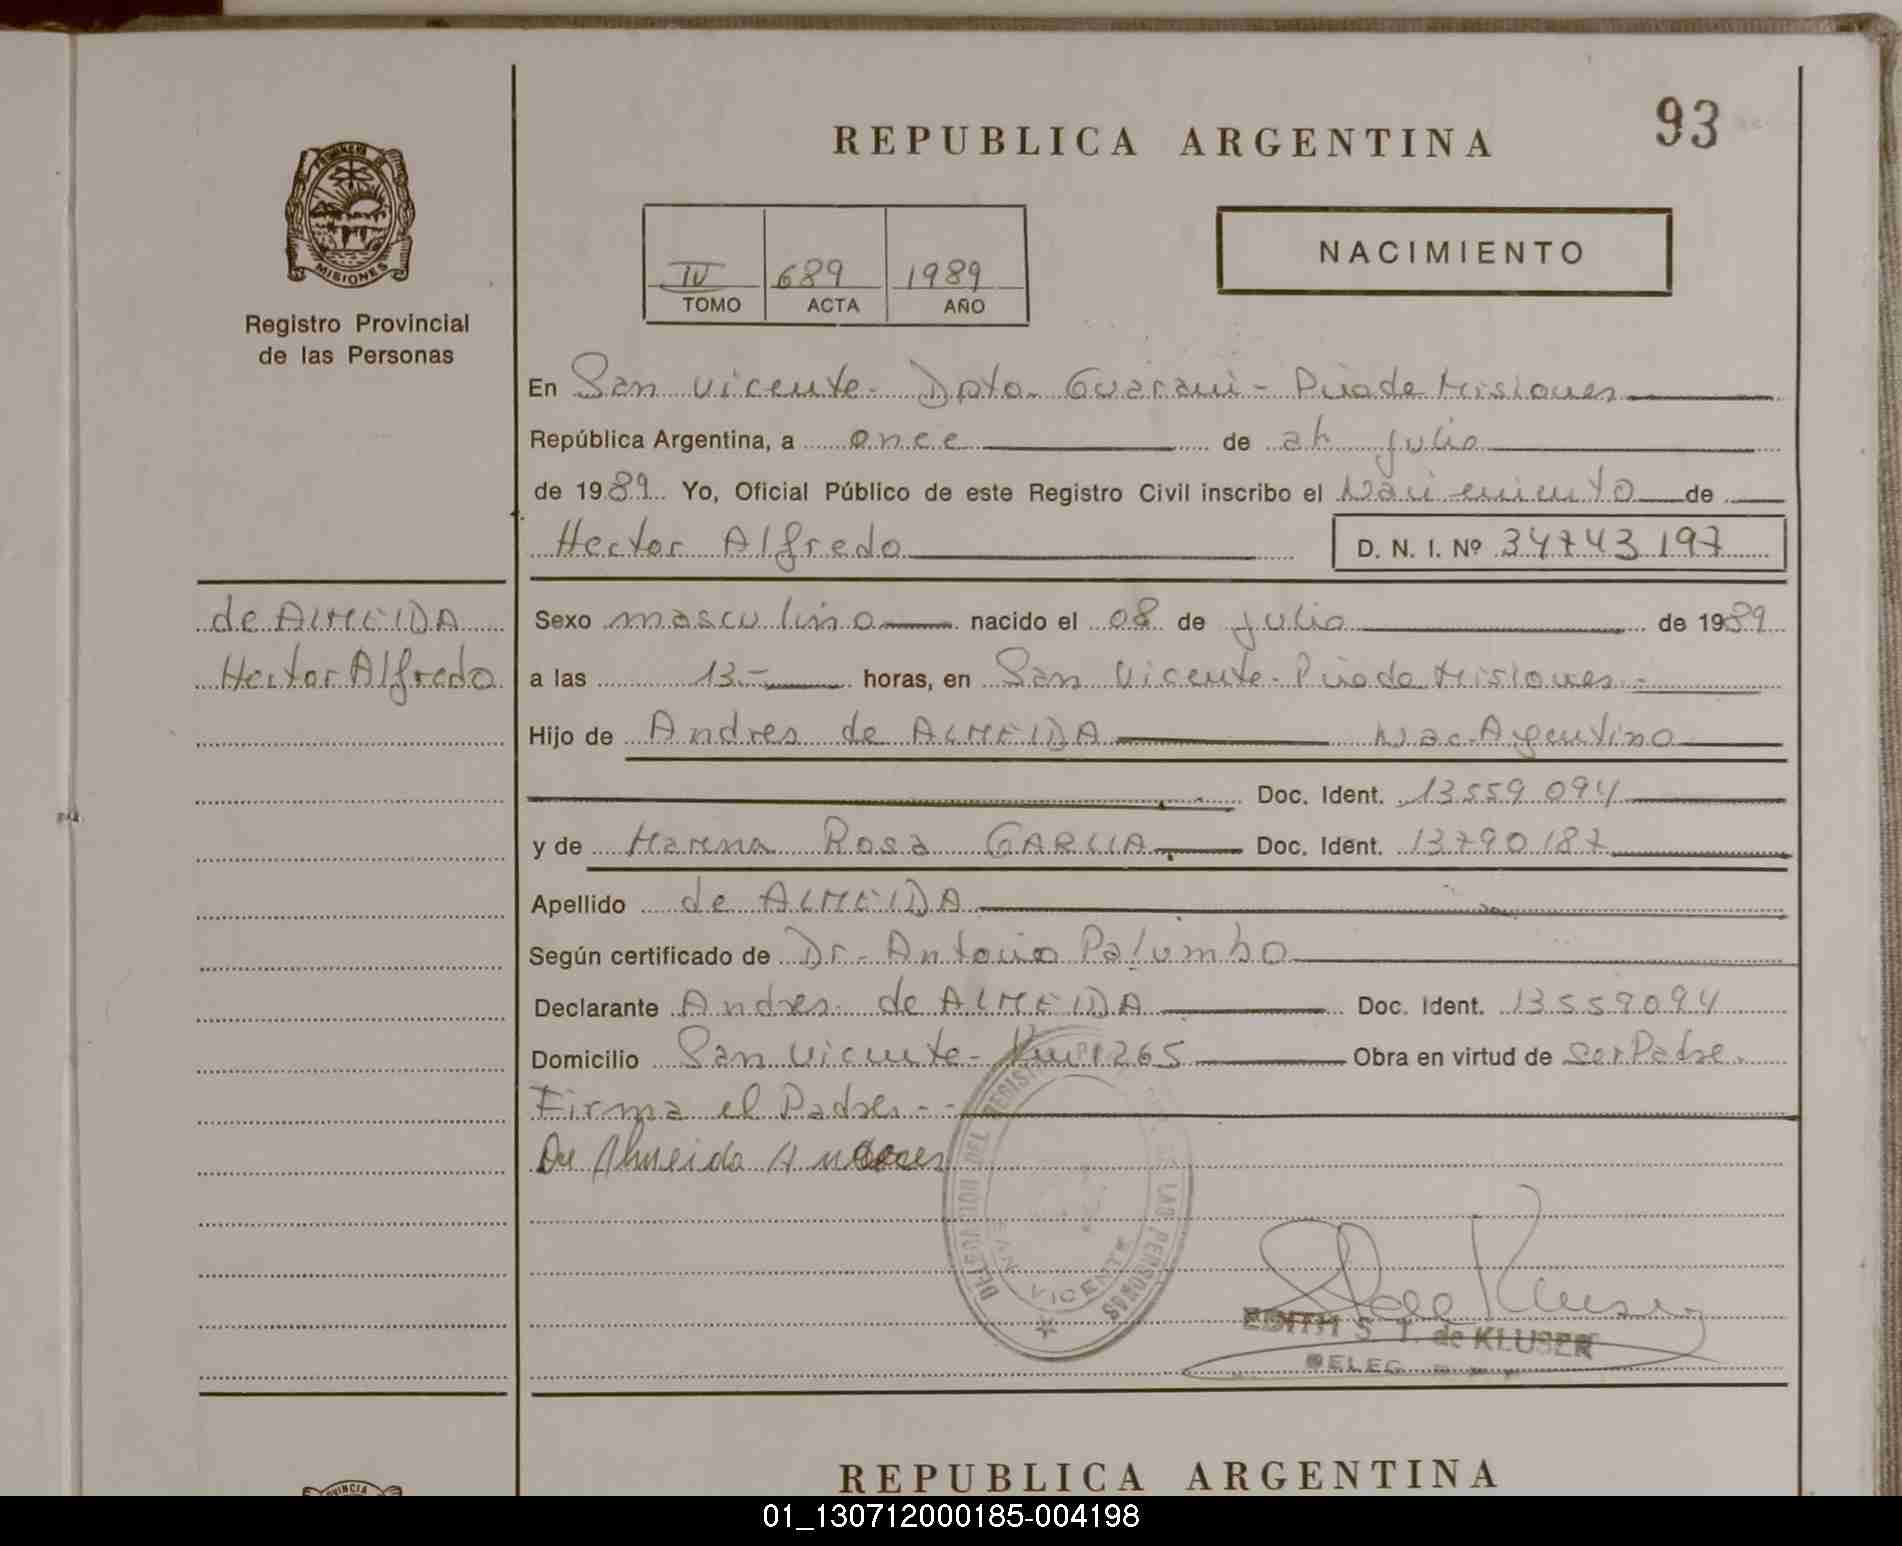 93
REPUBLICA ARGENTINA
PROVINCIA DE
MISIONES
Registro Provincial
de las Personas
IV 689 1989
TOMO ACTA AÑO
NACIMIENTO
En San Vicente- Dpto. Guarani- Pcia de Misiones
República Argentina, a once de julio
de 1989 Yo, Oficial Público de este Registro Civil inscribo el Nacimiento de
Hector Alfredo D. N. I. Nº 34743197
de ALMEIDA
Hector Alfredo
Sexo masculino nacido el 08 de julio de 1989
a las 13- horas, en San Vicente- Pcia de Misiones-
Hijo de Andres de ALMEIDA Nac. Argentino
Doc. Ident. 13559094
y de Rosa GARCIA Doc. Ident. 13790187
Apellido de ALMEIDA
Según certificado de Dr. Antonio Palumbo
Declarante Andres de ALMEIDA Doc. Ident. 13559094
Domicilio San Vicente- 1265 Obra en virtud de ser Padre.
Firma el Padre--
De Almeida
DELEGACION DEL REGISTRO DE LAS PERSONAS
SAN VICENTE
EDITH S. T. de KLUSER
DELEG
REPUBLICA ARGENTINA
01_130712000185-004198